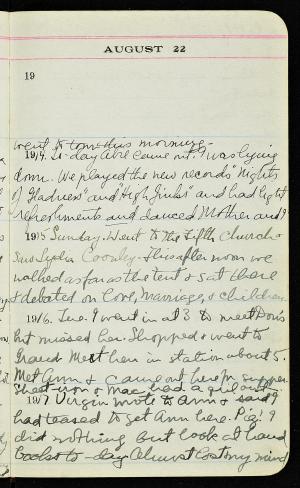 AUGUST 22
19
went to town this morning.
1914. To-day Abe came out. I was lying
down. We played the new records "Nights
of Gladness" and "High Jinks" and had light
refreshments and danced Mother and I
1915 Sunday. Went to the Fifth Church &
saw Lydia Coonley. This afternoon we
walked as far as the tent & sat there
& debated on love, marriage, & children.
1916. Tue. I went in at 3 to meet Doris
but missed her. Shopped & went to
Grand Meet her in station about 5.
Met Ann & came out here for supper.
Sheet-iron & Mac had a
1917 Virgin wrote to Ann & said I
had teased to get Ann here. Pig! I
did nothing but look at hand
books to-day Almost lost my mind